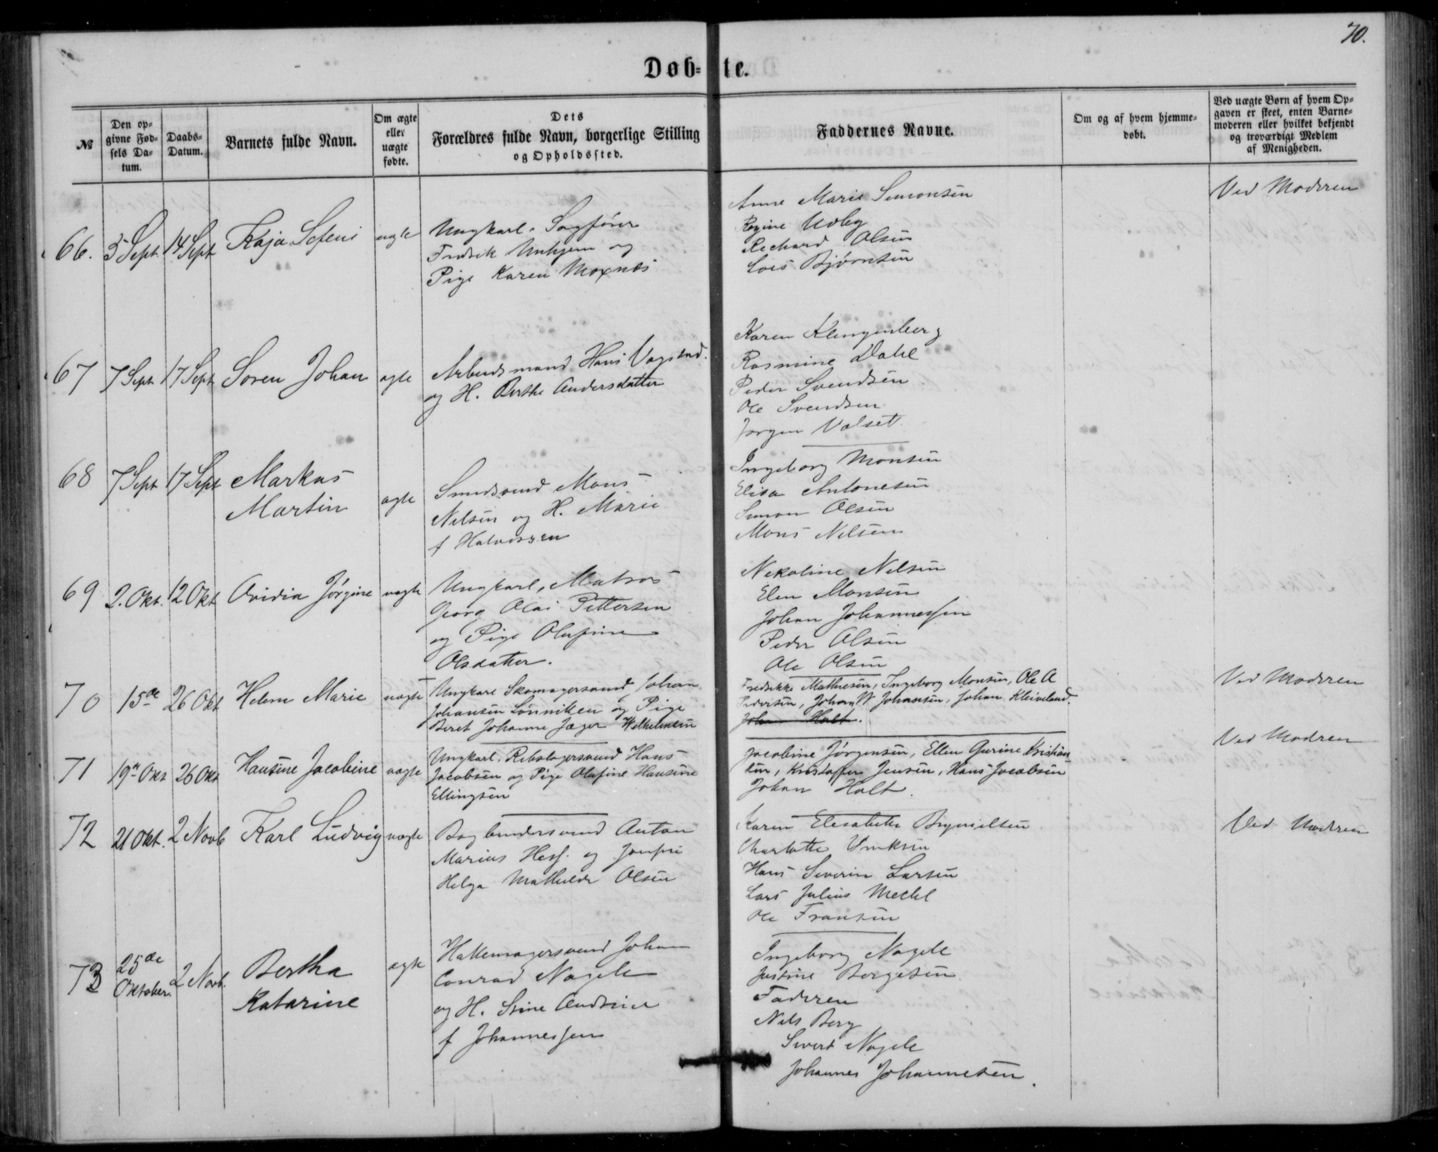 70.
Døb-te.
№
Den opgivne Fødsels Datum.
Daabs-Datum.
Barnets fulde Navn.
Om ægte eller uægte fødte.
Dets Forældres fulde Navn, borgerlige Stilling og Opholdssted.
Faddernes Navne.
Om og af hvem hjemmedøbt.
Ved uægte Børn af hvem Opgaven er skeet, enten Barnemoderen eller hvilket bekjendt og troværdigt Medlem af Menigheden.
66. 3 Sept 14 Sept Kaja uægte
Ungkarl, Sagfører
Fredrik Unhjem og
Pige Karen Moxnæs
Anne Marie Simonsen
Regine Udby
Richard Olsen
Lars Bjørnsen
Ved Modren
67 7 Sept 17 Sept Søren Johan ægte
Arbeidsmand Hans Vagstad
og H. Berthe Andersdatter
Karen Klingenberg
Rasmine Dahl
Peder Svendsen
Ole Svendsen
Jørgen Valset
68 7 Sept 17 Sept Markus
Martin ægte
Smedsvend Mons
Nilsen og H. Marie
f Halvorsen
Ingeborg Monsen
Elisa Antonesen
Simon Olsen
Mons Nilsen
69 2. Okt. 12 Okt Ovidia Jørgine uægte
Ungkarl, Matros
Georg Olai Pettersen
og Pige Olufine
Olsdatter.
Nikoline Nilsen
Elen Monsen
Johan Johannessen
Peder Olsen
Ole Olsen
70 15de 26 Okt Helene Marie uægte
Ungkarl Skomagersvend Johan
Johansen Sønniken og Pige
Beret Johanne Jæger Wilhelmsen
Fredrikke Mathiesen, Ingeborg Monsen, Ole A
Pedersen, Johan P Johansen, Johan Kleveland.
Johan Holt.
Ved Modren
71 19de Okt 26 Okt Hansine Jacobine uægte
Ungkarl, Rebslagersvend Hans
Jacobsen og Pige Olufine Hansine
Ellingsen
Jacobine Jørgensen, Ellen Gurine Kristian-
sen, Kristoffer Jensen, Hans Jacobsen
Johan Holt.
Ved Modren
72 21 Okt. 2 Novb Karl Ludvig uægte
Bogbindersvend Anton
Marius Hess. og Jomfru
Helga Mathilde Olsen
Karen Elisabethe Brynildsen
Charlotte
Hans Severin Larsen
Lars Julius Mechl
Ole Fransen
Ved Modren
73 25de
Oktober 2 Novb. Bertha
Katarine ægte
Hattemagersvend Johan
Conrad Nagele
og H. Stine Andrea
f Johannessen
Ingeborg Nagele
Justine Borgesen
Fadren
Nils Berg
Sivert Nagele
Johannes Johannesen.